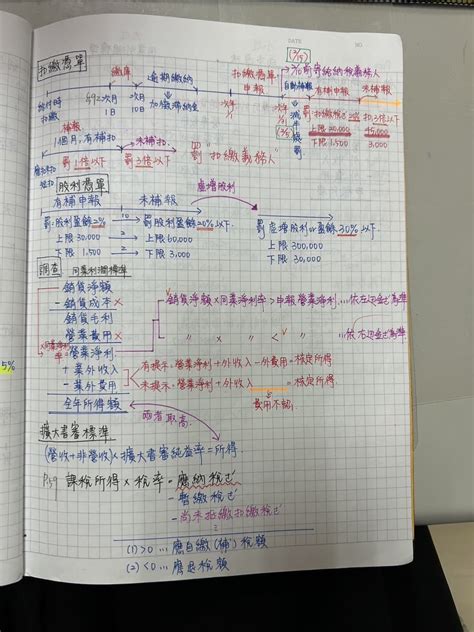 DATE
NO.
扣繳憑單
繳庫
逾期繳納
扣繳憑單
申報
(2/15)
2/10前寄納稅義務人
自動補報
有補申報
未補報
給付時
扣繳
次月
1日
次月
10日
加徵滯納金
次年
1/1
次年
1/31
(2/5)
減半
處罰
補報
1個月,有補扣
未補扣
罰1倍以下
罰3倍以下
罰"扣繳義務人"
罰扣繳稅款20%
扣3倍以下
上限20,000
45,000
下限1,500
3,000
股利憑單
有補申報
未補報
虛增股利
罰:股利盈餘20%
罰股利盈餘20%以下
罰虛增股利or盈餘30%以下
上限30,000
上限60,000
上限300,000
下限1,500
下限3,000
下限
調查
同業利潤標準
銷貨淨額
銷貨淨額×同業淨利率>申報營業淨利...依左述為準
- 銷貨成本×
銷貨毛利
- 營業費用×
〃 × 〃 < 〃 ...依右述為準
×同業淨利率= 營業淨利
+ 業外收入
有提示:營業淨利+外收入-外費用=核定所得
- 業外費用
未提示:營業淨利+外收入=核定所得
費用不認
全年所得額
兩者取高
擴大書審標準
(營收+非營收)×擴大書審純益率=所得
P.59 課稅所得×稅率=應納稅額
- 暫繳稅額
- 尚未抵繳扣繳稅額
(1)>0...應自繳(補)稅額
(2)<0...應退稅額
5%